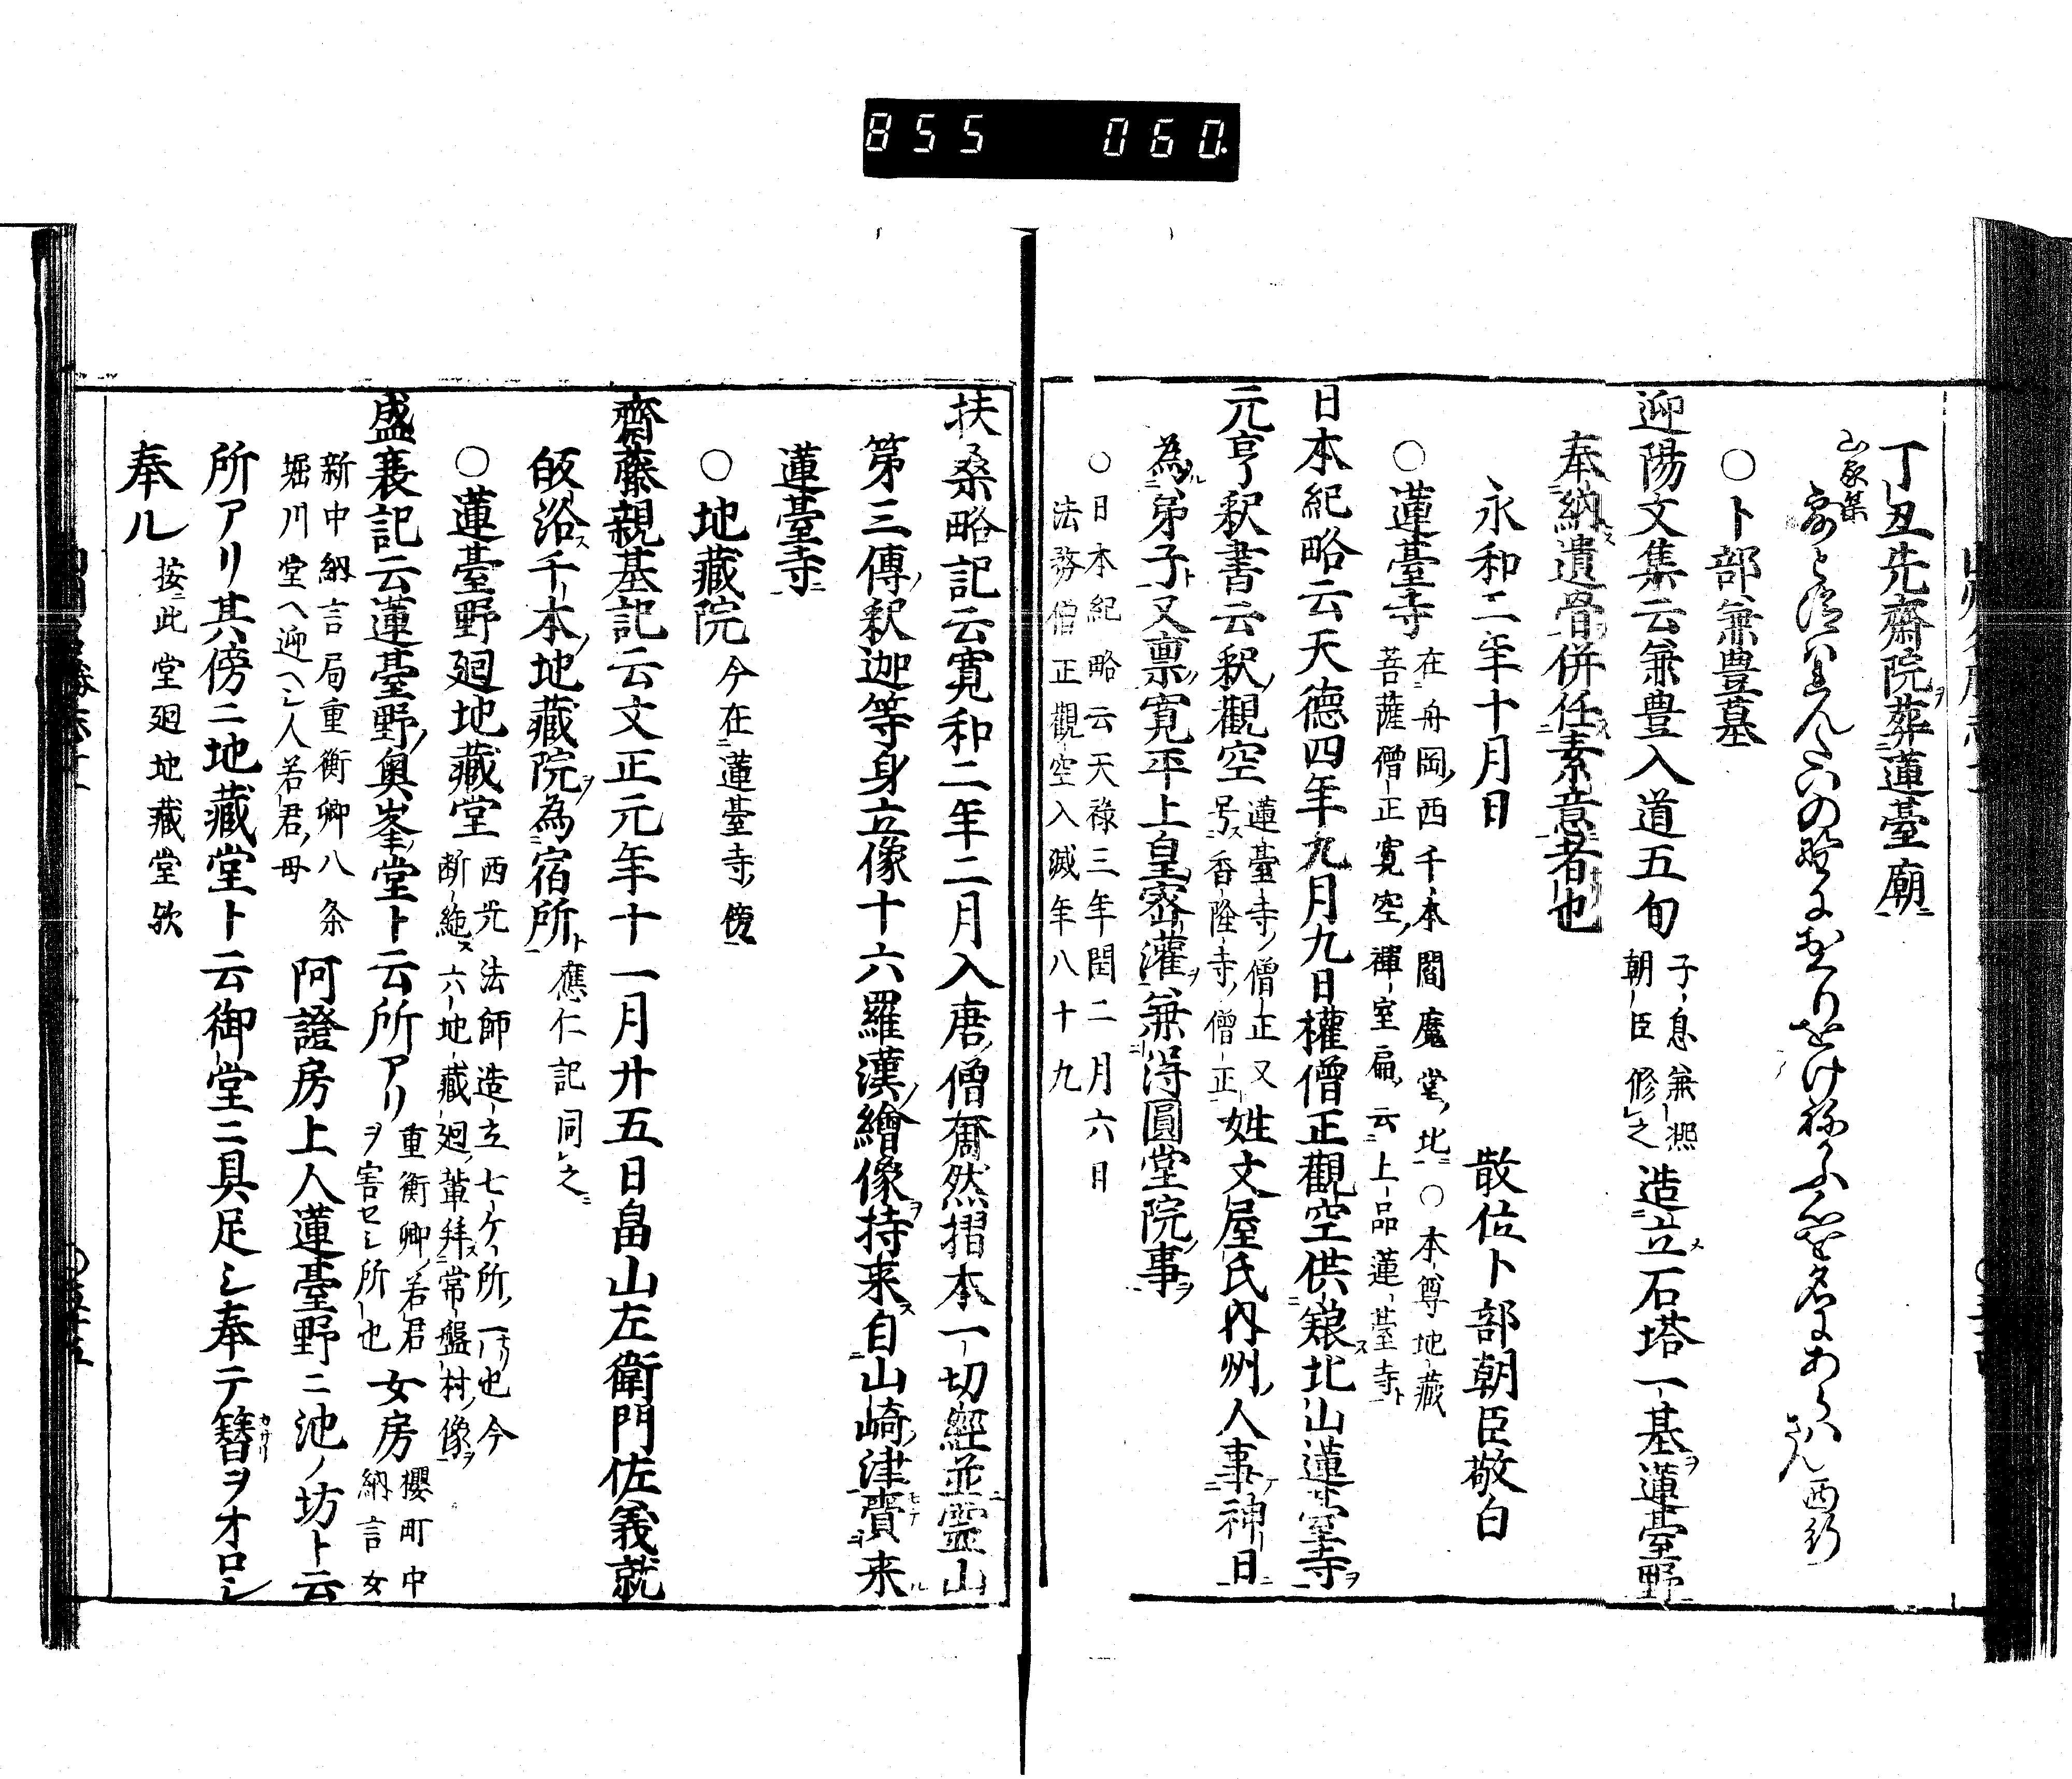 855 060
丁丑先齋院葬蓮臺廟
山家集
西行
○卜部兼豊墓
迎陽文集云兼豊入道五旬 子息兼凞朝臣修之 造立石塔一基蓮臺野
奉納遺骨併任素意者也
永和二年十月日 散位卜部朝臣敬白
○蓮臺寺 在舟岡西千本閻魔堂北○本尊地藏菩薩僧正寛空禪室扁云上品蓮臺寺
日本紀略云天德四年九月九日權僧正觀空供養北山蓮臺寺
元亨釈書云釈觀空 蓮臺寺僧正又号香隆寺僧正 姓文屋氏内州人事神日
為弟子又禀寛平上皇密灌兼得圓堂院事
○日本紀略云天祿三年閏二月六日
法務僧正觀空入滅年八十九
扶桑略記云寛和二年二月入唐僧奝然摺本一切經並霊山
第三傳釈迦等身立像十六羅漢繪像持来自山崎津賷来
蓮臺寺
○地藏院 今在蓮臺寺傍
齋藤親基記云文正元年十一月廿五日畠山左衛門佐義就
皈洛千本地藏院為宿所 應仁記同之
○蓮臺野廻地藏堂 西光法師造立七ケ所一ケ所也今断絶六地藏廻輩拜常盤村像
盛衰記云蓮臺野奥峯堂ト云所アリ 重衡卿若君ヲ害セシ所也 女房 櫻町中納言女
新中納言局重衡卿八条堀川堂ヘ迎ヘシ人若君母 阿證房上人蓮臺野ニ池ノ坊ト云
所アリ其傍ニ地藏堂ト云御堂ニ具足シ奉テ簪ヲオロシ
奉ル 按此堂廻地藏堂欤